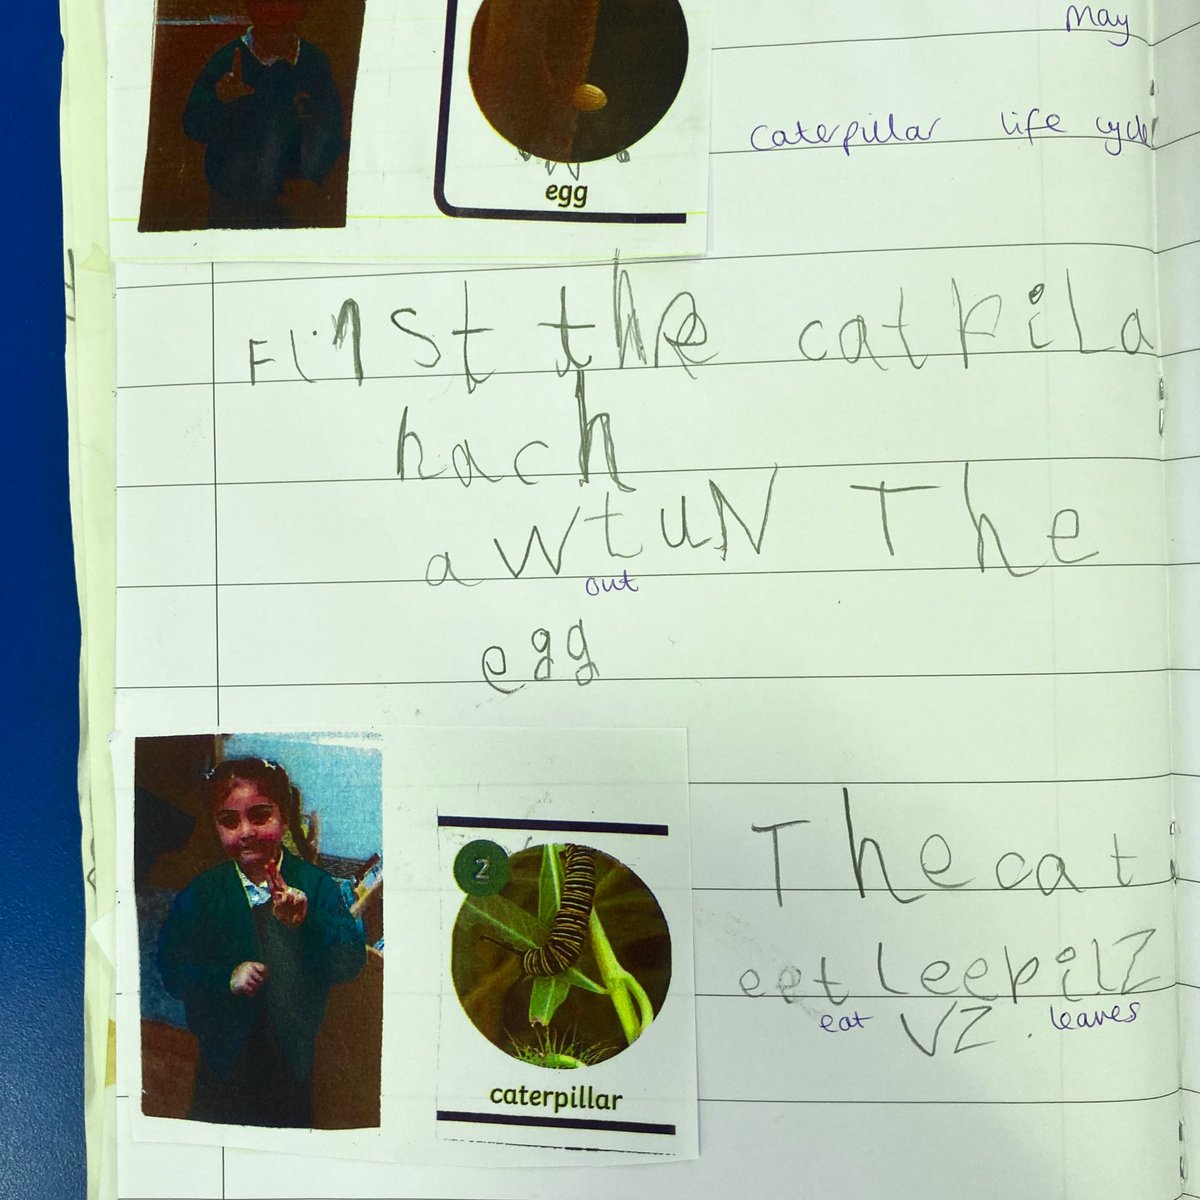 May
caterpillar life cycle
egg
First the catpila
hach
awtuN The
out
egg
2
The cat
eet leepilz
eat leaves
VZ.
caterpillar